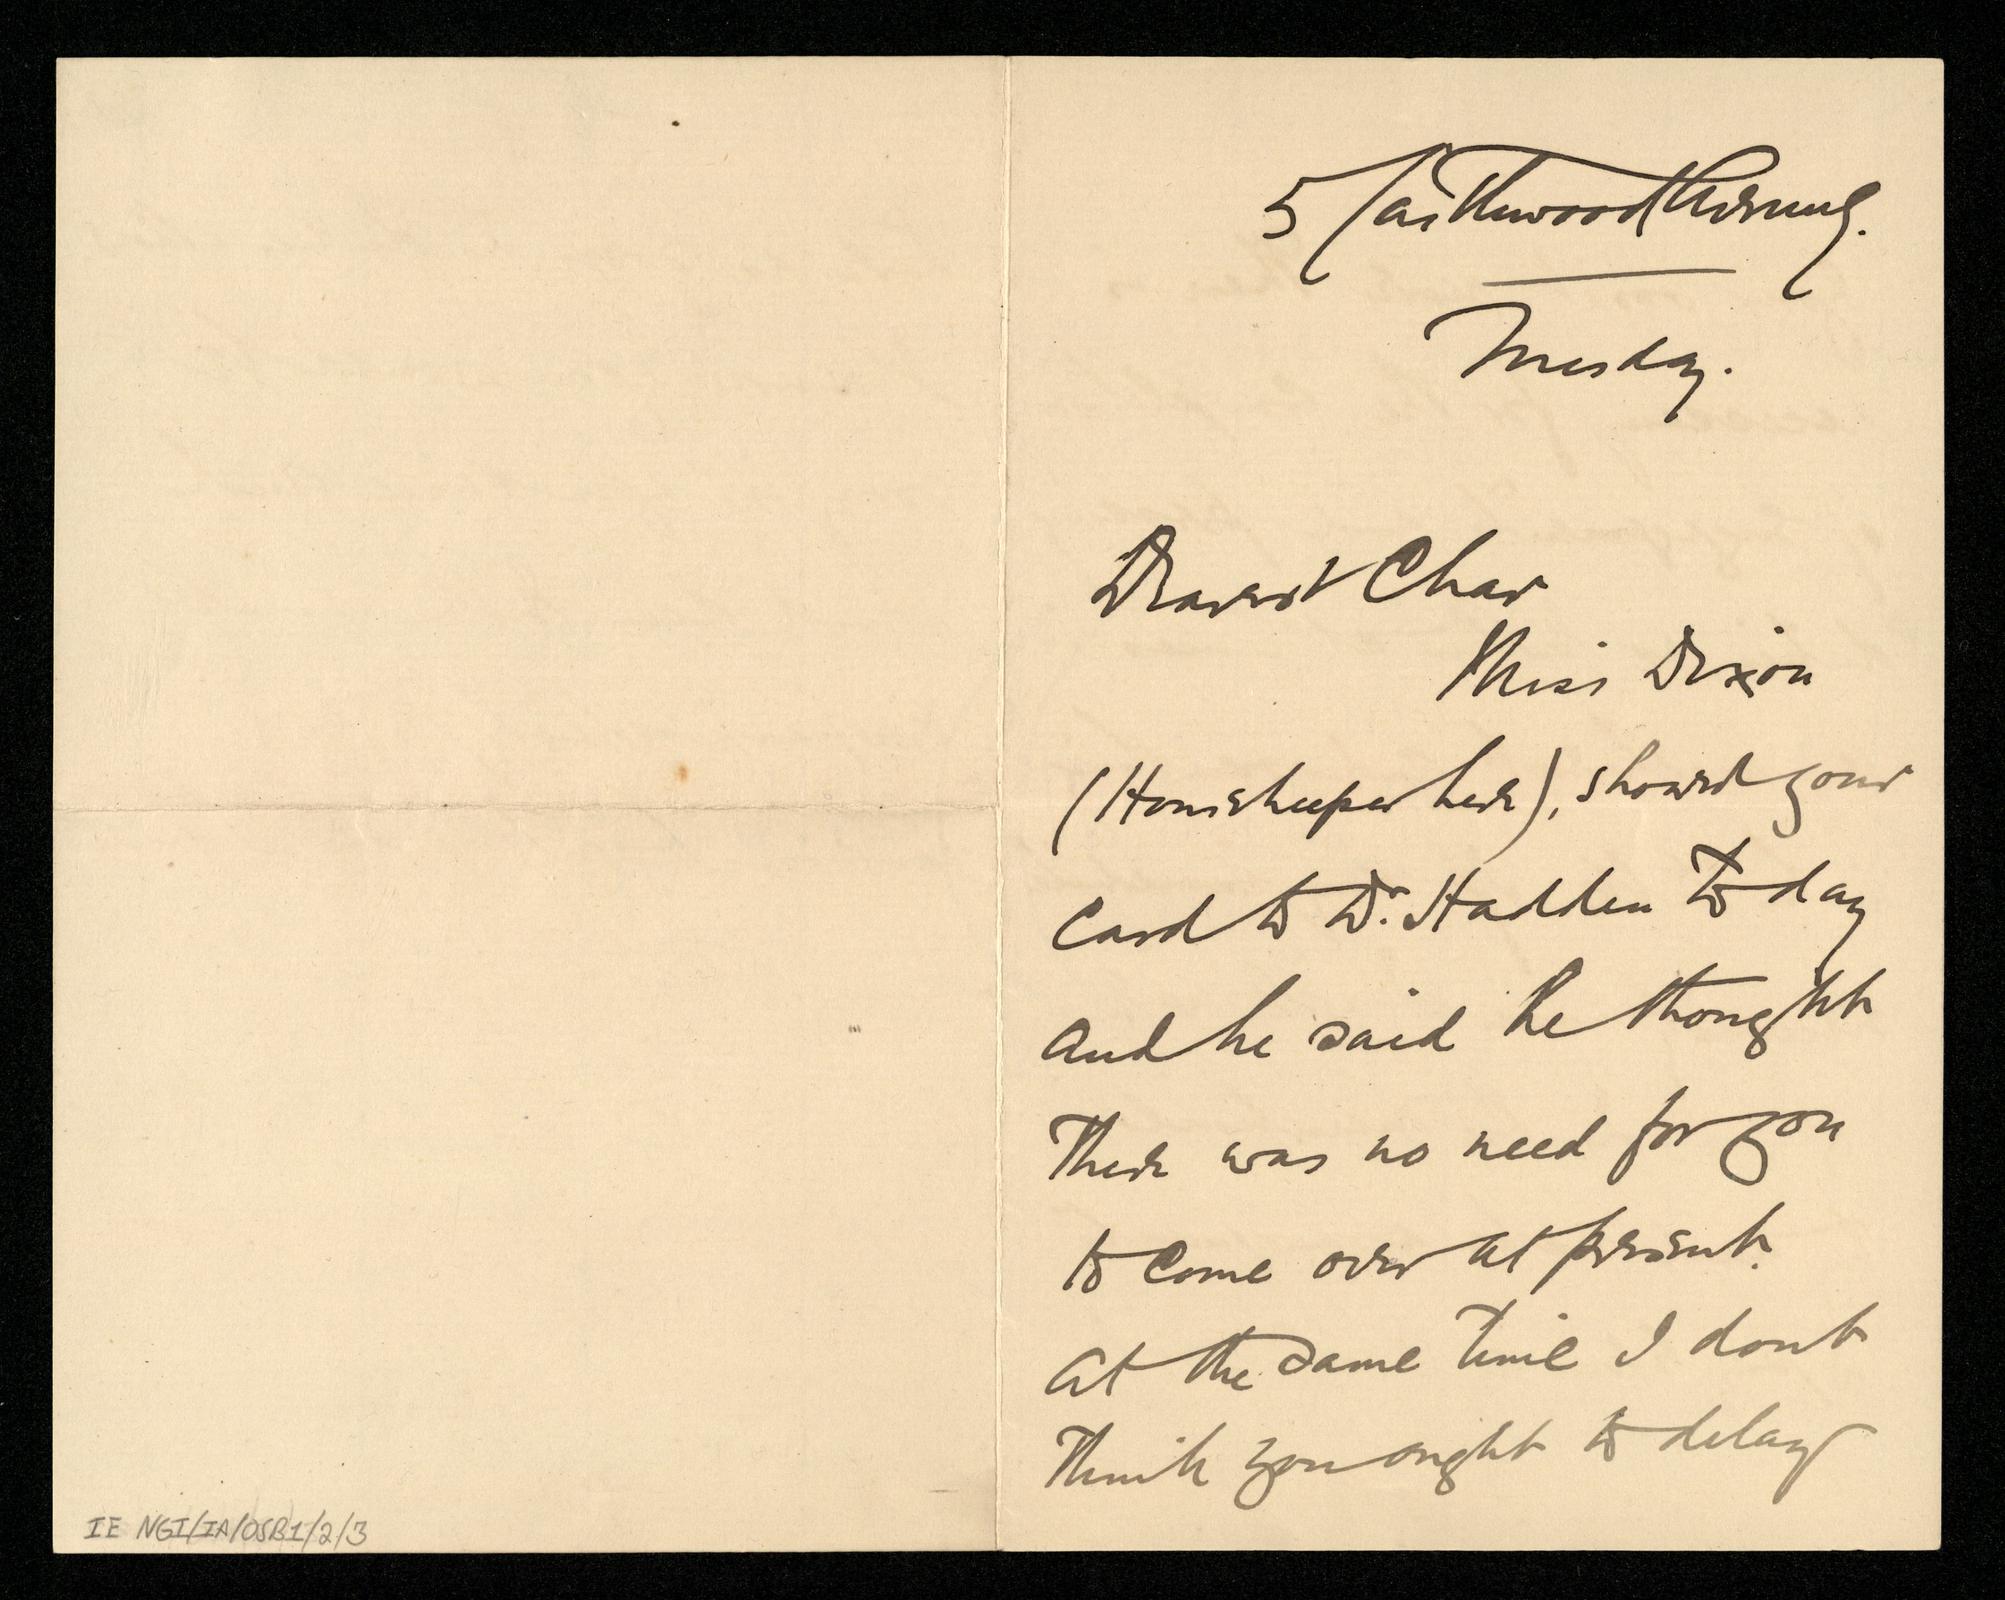 5 Castlewood Avenue.
Tuesday.
Dearest Char
Miss Dixon
(Housekeeper here), showed your
Card to Dr. Hadden To day
and he said he thought
There was no need for you
to Come over at present.
at the same time I dont
Think you ought to delay
IE NGI/IA/OSB1/2/3